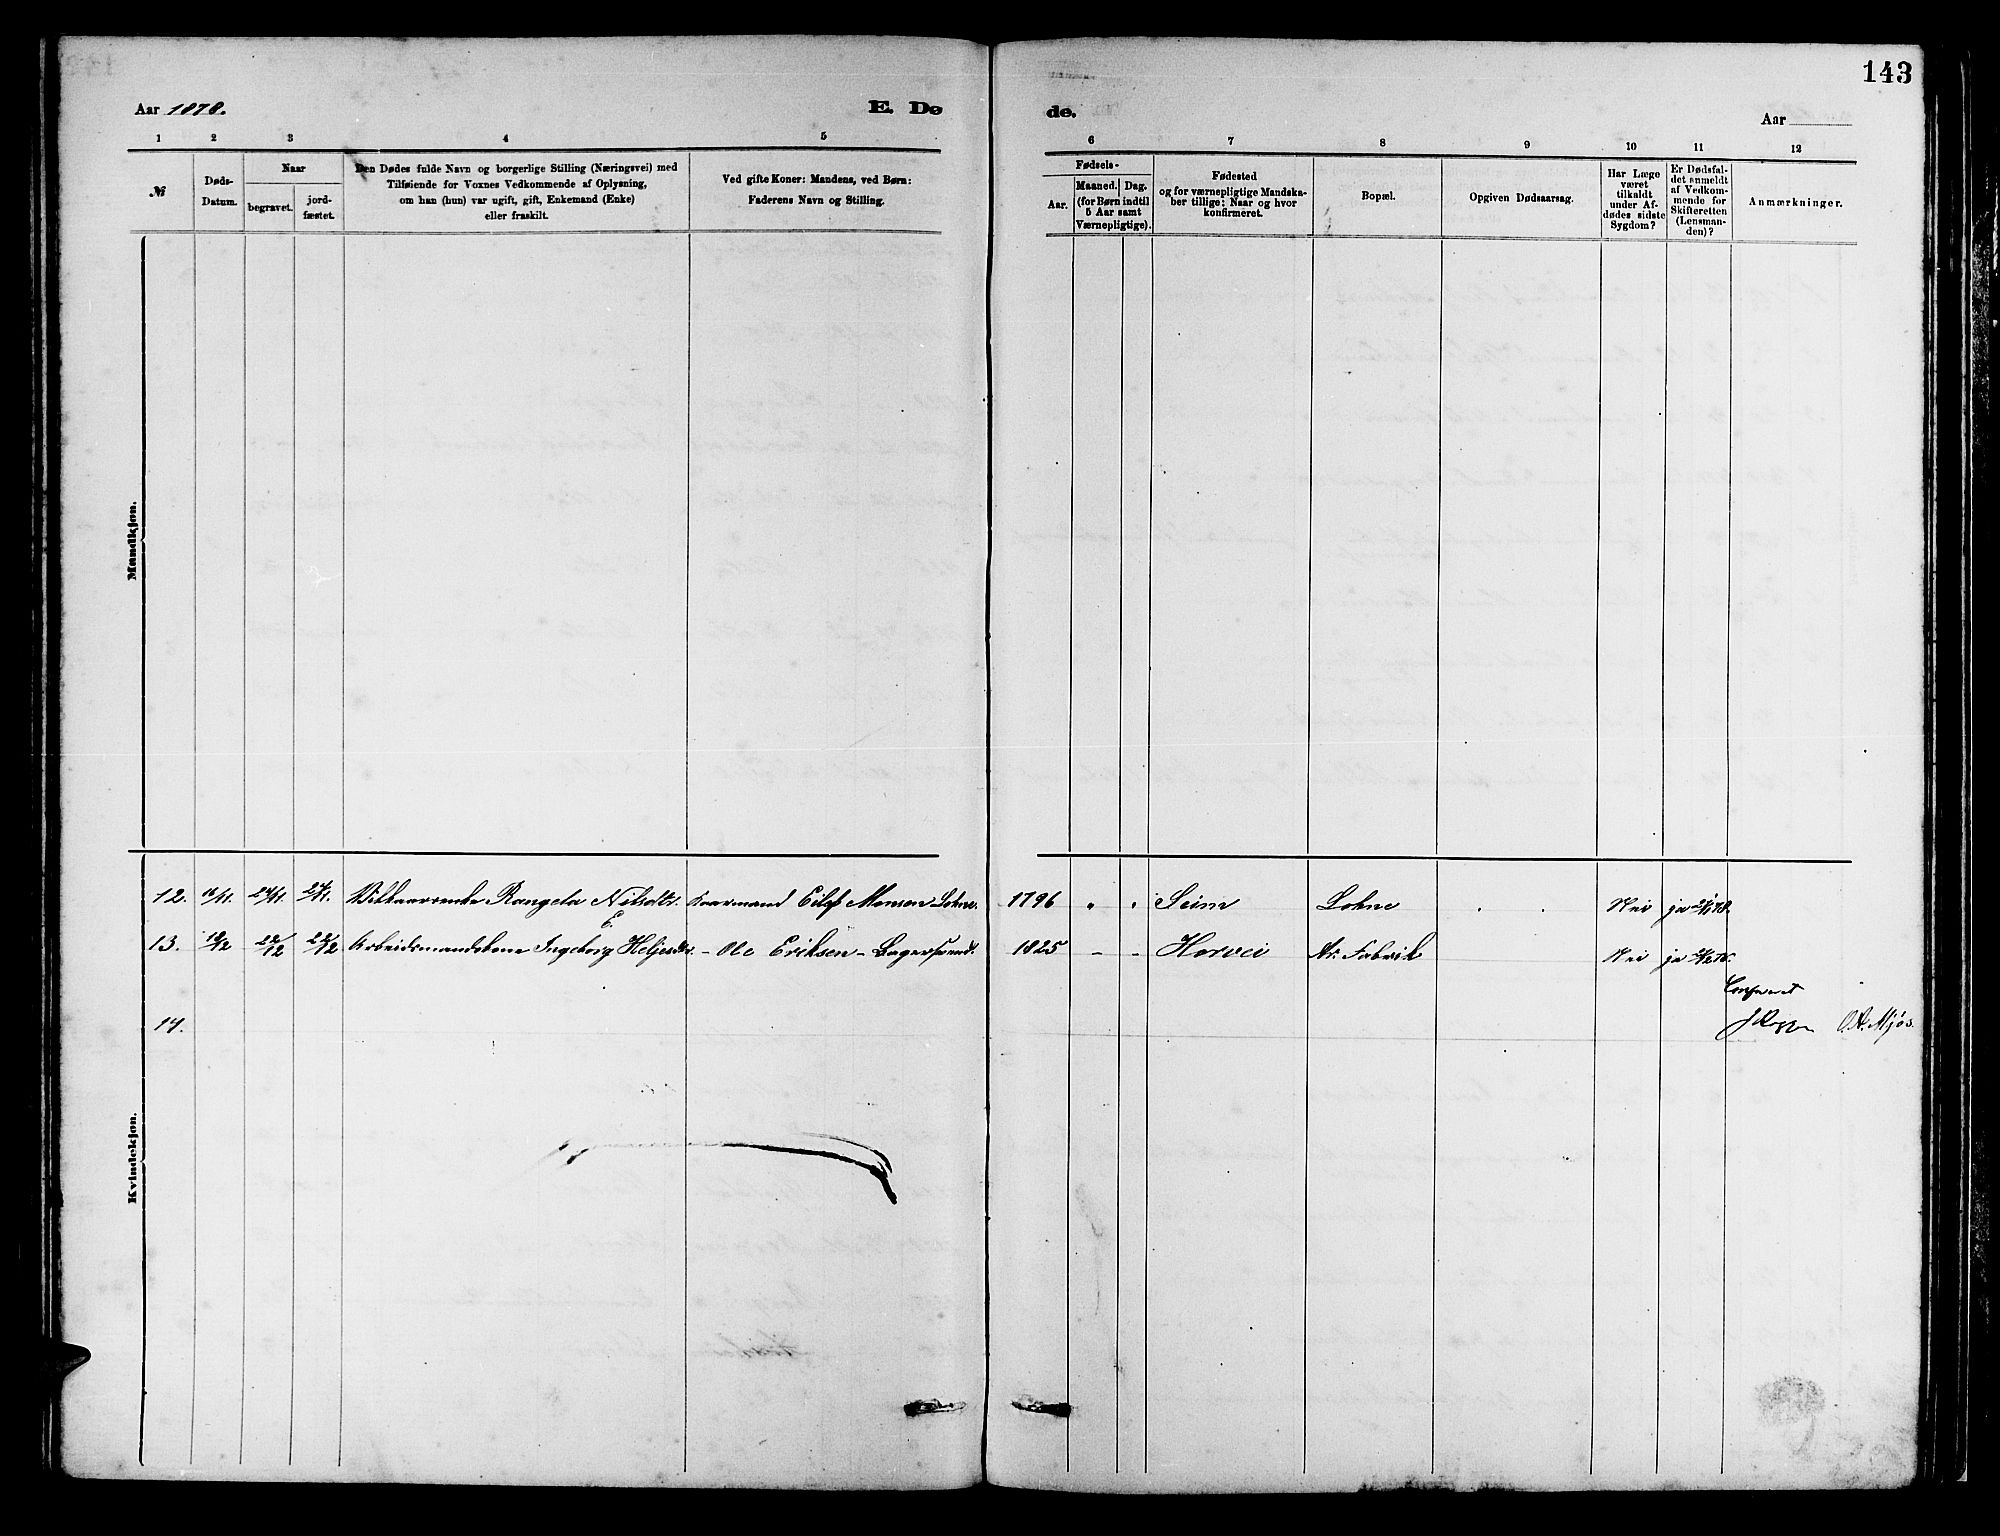 143
Aar 1878.
E. Dø
de.
Aar
1 2 3 4 5
6 7 8 9 10 11 12
№
Døds-
Datum.
Naar
begravet.
jord-
fæstet.
Den Dødes fulde Navn og borgerlige Stilling (Næringsvei) med
Tilføiende for Voxnes Vedkommende af Oplysning,
om han (hun) var ugift, gift, Enkemand (Enke)
eller fraskilt.
Ved gifte Koner: Mandens, ved Børn:
Faderens Navn og Stilling.
Fødsels-
Aar.
Maaned. Dag.
(for Børn indtil
5 Aar samt
Værnepligtige).
Fødested
og for værnepligtige Mandska-
ber tillige: Naar og hvor
konfirmeret.
Bopæl.
Opgiven Dødsaarsag.
Har Læge
været
tilkaldt
under Af-
dødes sidste
Sygdom?
Er Dødsfal-
det anmeldt
af Vedkom-
mende for
Skifteretten
(Lensman-
den)?
Anmærkninger.
Mandkjøn.
Kvindekjøn.
12. 16/11. 24/11. 24/11. Rangela Nilsdtr. Kaarmand Eilef Monsen Lohne. 1796 " " Seim Lohne Nei ja
13. 22/12 22/12 Arbeidsmandskone Ingeborg Heljesdtr. - Ole Eriksen - 1825 - - Horvei Ar. Fabrik Nei ja
14.
O.A. Mjøs.